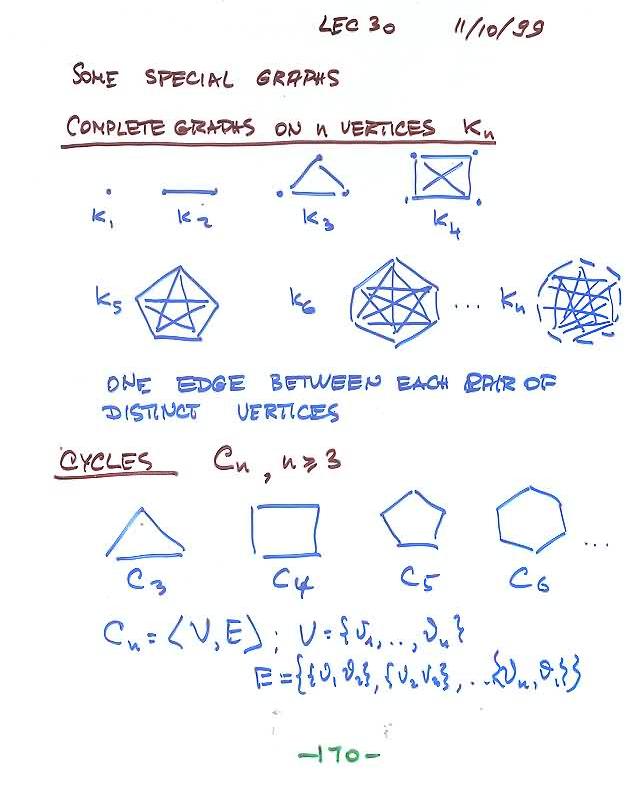 LEC 30 11/10/99
SOME SPECIAL GRAPHS
COMPLETE GRAPHS ON n VERTICES Kn
K1 K2 K3 K4
K5 K6 ... Kn
ONE EDGE BETWEEN EACH PAIR OF
DISTINCT VERTICES
CYCLES Cn, n ≥ 3
C3 C4 C5 C6 ...
Cn = ⟨V, E⟩ ; V = {v1, .., vn}
E = {{v1 v2}, {v2 v3}, ... {vn, v1}}
-170-